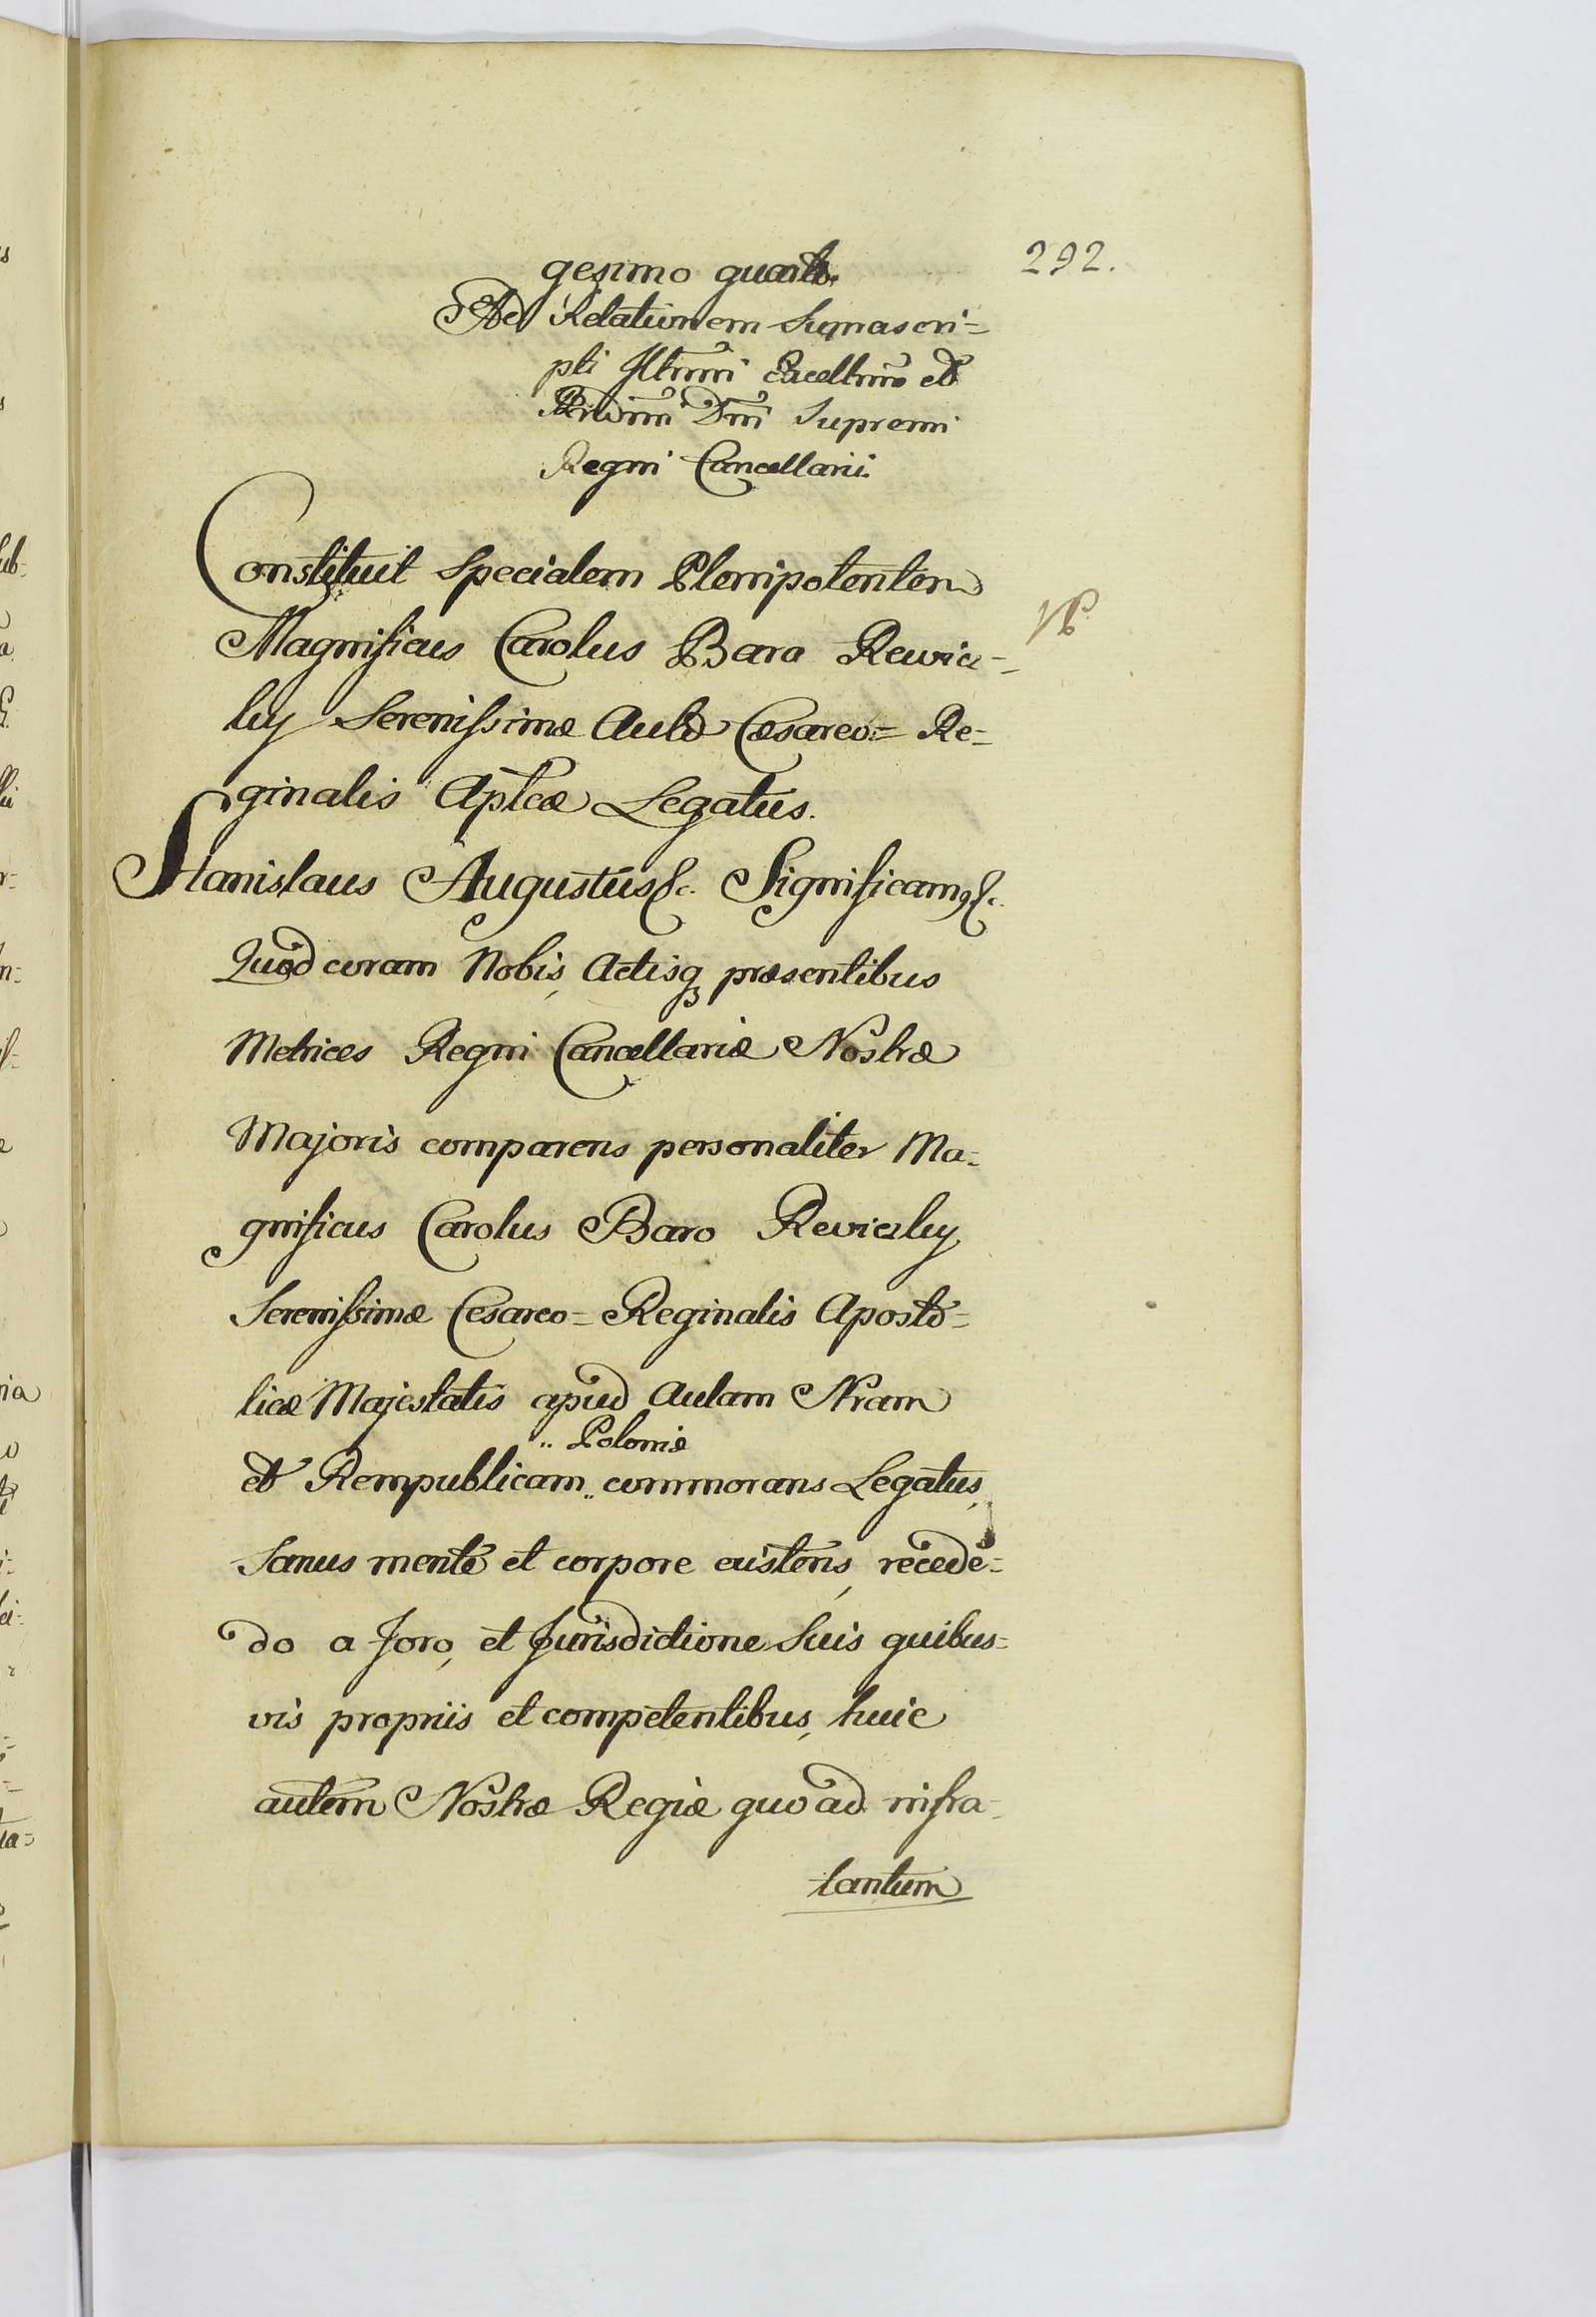 292.
gesimo quarto.
Ad Relationem Supraseri=
pti Illmi Excellmi et
Rndmi Dni Supremi
Regni Cancellarii.
Constituit Specialem Plenipotentem
Magnificus Carolus Baro Rewicz=
ky Serenissimæ Aulæ Cæsareo = Re=
ginalis Aplcæ Legatus.
Stanislaus Augustus &c. Significamq &c.
Quod coram Nobis, Actisq præsentibus
Metrices Regni Cancellariæ Nostræ
Majoris comparens personaliter Ma=
gnificus Carolus Baro Reviczky
Serenissimæ Cesareo = Reginalis Aposto=
licæ Majestatis apud Aulam Nram
.. Poloniæ
et Rempublicam .. commorans Legatus,
Sanus mente et corpore existens, recede=
do a Foro, et Jurisdictione Suis quibus=
vis propriis et competentibus, huic
autem Nostræ Regiæ quo ad infra=
tantum